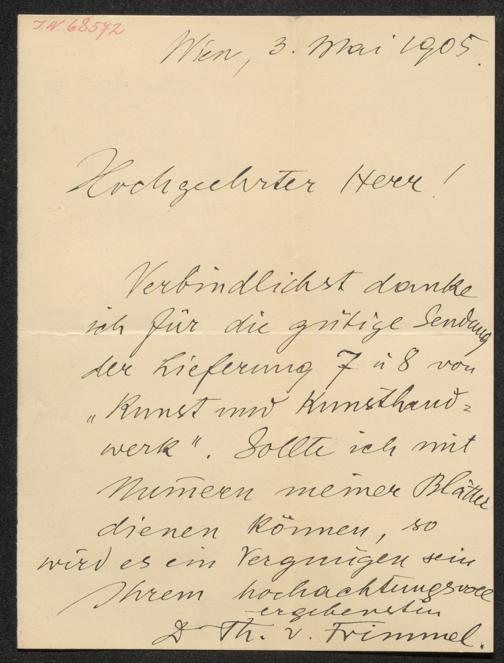 J.N. 68572
Wien, 3. Mai 1905.
Hochgeehrter Herr!
Verbindlichst danke
ich für die gütige Sendung
der Lieferung 7 u 8 von
„Kunst und Kunsthand=
werk“. Sollte ich mit
Num̄ern meiner Blätter
dienen können, so
wird es ein Vergnügen sein
Ihrem hochachtungsvoll
ergebensten
Dr Th. v. Frimmel.